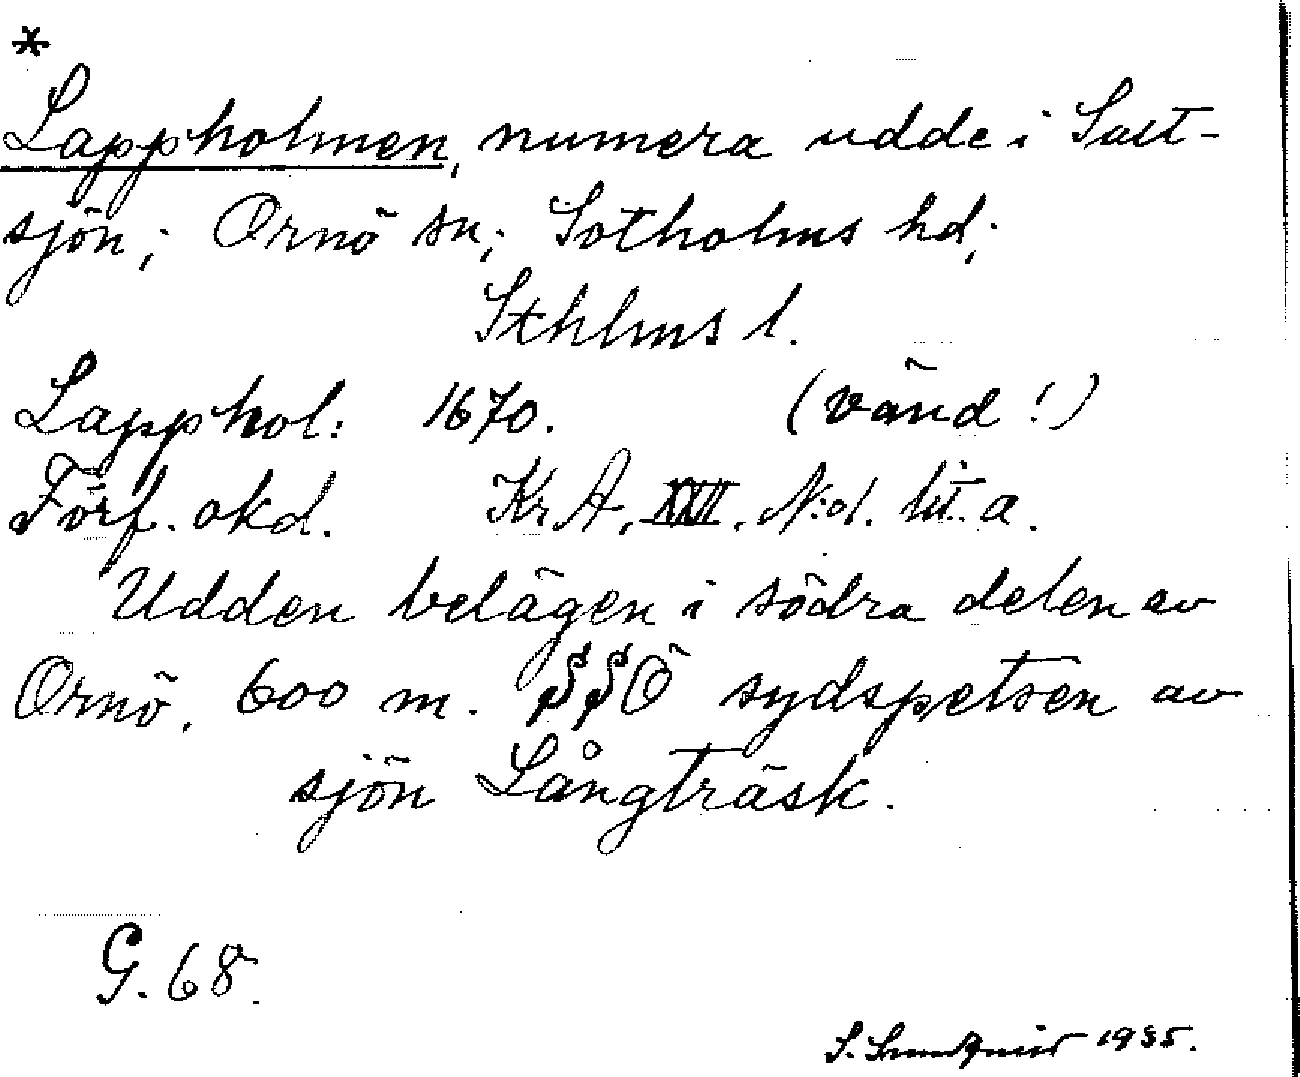 *
Lappholmen, numera udde i Salt-
sjön; Ornö sn; Sotholms hd;
Sthlms l.
Lapphol: 1670. (vänd!)
Förf. okd. KrA, XXVI. N:o1. lit. a.
Udden belägen i södra delen av
Ornö. 600 m. SSÖ sydspetsen av
sjön Långträsk.
G. 68.
S. 1935.